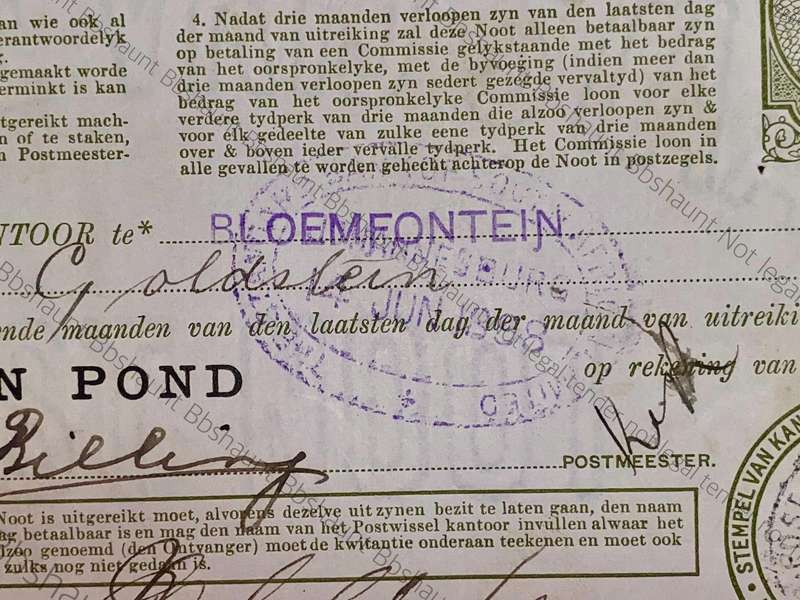 an wie ook al
erantwoordelyk
g.
gemaakt worde
erminkt is kan
tgereikt mach-
n of te staken,
n Postmeester-
4. Nadat drie maanden verloopen zyn van den laatsten dag
der maand van uitreiking zal deze Noot alleen betaalbaar zyn
op betaling van een Commissie gelykstaande met het bedrag
van het oorspronkelyke, met de byvoeging (indien meer dan
drie maanden verloopen zyn sedert gezegde vervaltyd) van het
bedrag van het oorspronkelyke Commissie loon voor elke
verdere tydperk van drie maanden die alzoo verloopen zyn &
voor elk gedeelte van zulke eene tydperk van drie maanden
over & boven ieder vervalle tydperk. Het Commissie loon in
alle gevallen te worden gehecht achterop de Noot in postzegels.
NTOOR te* BLOEMFONTEIN.
Goldstein
JUN
ende maanden van den laatsten dag der maand van uitreiki
N POND
op rekening van
Billing
POSTMEESTER.
Noot is uitgereikt moet, alvorens dezelve uit zynen bezit te laten gaan, den naam
ag betaalbaar is en mag den naam van het Postwissel kantoor invullen alwaar het
alzoo genoemd (den Ontvanger) moet de kwitantie onderaan teekenen en moet ook
zulks nog niet gedaan is.
STEMPEL VAN KAN
Bbshaunt Not legal tender